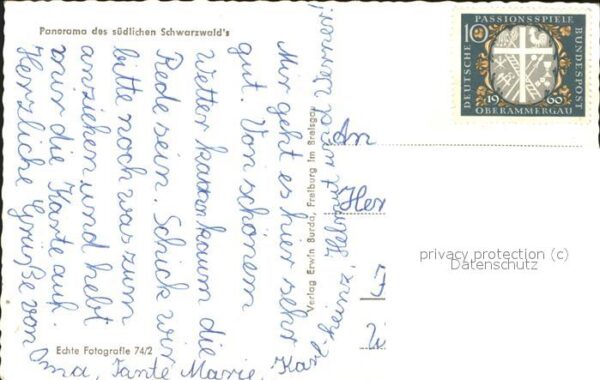 Panorama des südlichen Schwarzwald's
Mir geht es hier sehr
gut. Von schönem
Wetter kann kaum die
Rede sein. Schick wir
bitte noch was zum
anziehen und hebt
mir die Karte auf.
Herzliche Grüße von
Oma, Tante Marie,
Karl-heinz,
Echte Fotografie 74/2
Verlag Erwin Burda, Freiburg im Breisgau
DEUTSCHE BUNDESPOST
10
PASSIONSSPIELE
1960
OBERAMMERGAU
An
Her
privacy protection (c)
Datenschutz